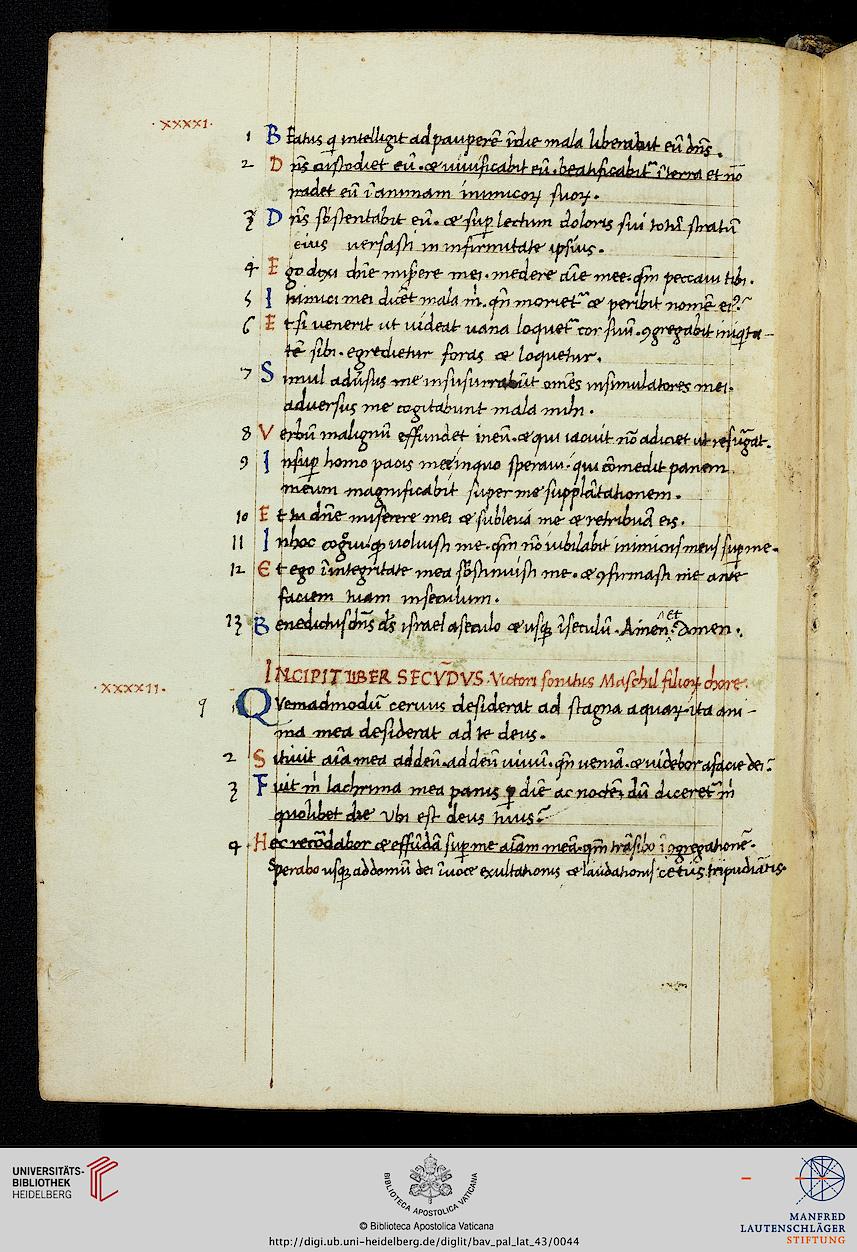 ·xxxx1·
1 BEatus q̃ intelligit ad pauperẽ ĩ die mala liberabit eũ dñs.
2 Dñs custodiet eũ. & uiuificabit eũ. beatificabit̃ ĩ terra et nõ
tradet eũ ĩ animam inimicoꝝ suoꝝ.
3 Dñs sb̃stentabit eũ. & suꝑ lectum doloris sui totũ stratũ
eius uersasti in infirmitate ipsius.
4 Ego dixi dñe misẽre mei. medere aĩe mee. qm̃ peccaui tibi.
5 Inimici mei dicẽt mala m̃. qñ moriet̃ & peribit nomẽ ei⁹?
6 Et si uenerit ut uideat uana loquet̃ cor suũ. ꝯgregabit iniq̃ta-
tẽ sibi. egredietur foras & loquetur.
7 Simul adũsus me insusurrabũt om̃es insimulatores mei.
adversus me cogitabunt mala mihi.
8 Verbũ malignũ effundet in eũ. & qui iacuit nõ adiciet ut resurgat.
9 Insuꝑ homo pacis mee in quo speraui. qui cõmedit panem
meum magnificabit super me supplãtationem.
10 Et tu dñe miserere mei & subleua me & retribuã eis.
11 In hoc cognui. ꝙ uoluisti me. qm̃ nõ iubilabit inimicus meus suꝑ me.
12 Et ego ĩ integritate mea sb̃stinuisti me. & ꝯfirmasti me ante
faciem tuam in seculum.
13 Benedictus dñs ds̃ israel a seculo & usqꝫ ĩ seculũ. Amen. et Amen.
INCIPIT LIBER SECVD̃VS. Victori sonitus Maschil filioꝝ chore.
·xxxx11·
1 QVemadmodũ ceruus desiderat ad stagna aquaꝝ ita ani-
ma mea desiderat ad te deus.
2 Sitiuit aĩa mea ad deũ. ad deũ uiuũ. qñ ueniã. & uidebor a facie dei?
3 Fuit m̃ lachrima mea panis ꝑ diẽ ac noctẽ. dũ diceret̃ m̃
quolibet die Vbi est deus tuus?
4 Hec recõdabor & effũdã suꝑ me aĩam meã. qm̃ trãsibo ĩ ꝯgregationẽ.
Sperabo usqꝫ ad domũ dei ĩ uoce exultationis & laudationis cetus tripudiãtis.
UNIVERSITÄTS-
BIBLIOTHEK
HEIDELBERG
BIBLIOTECA APOSTOLICA VATICANA
© Biblioteca Apostolica Vaticana
http://digi.ub.uni-heidelberg.de/diglit/bav_pal_lat_43/0044
MANFRED
LAUTENSCHLÄGER
STIFTUNG